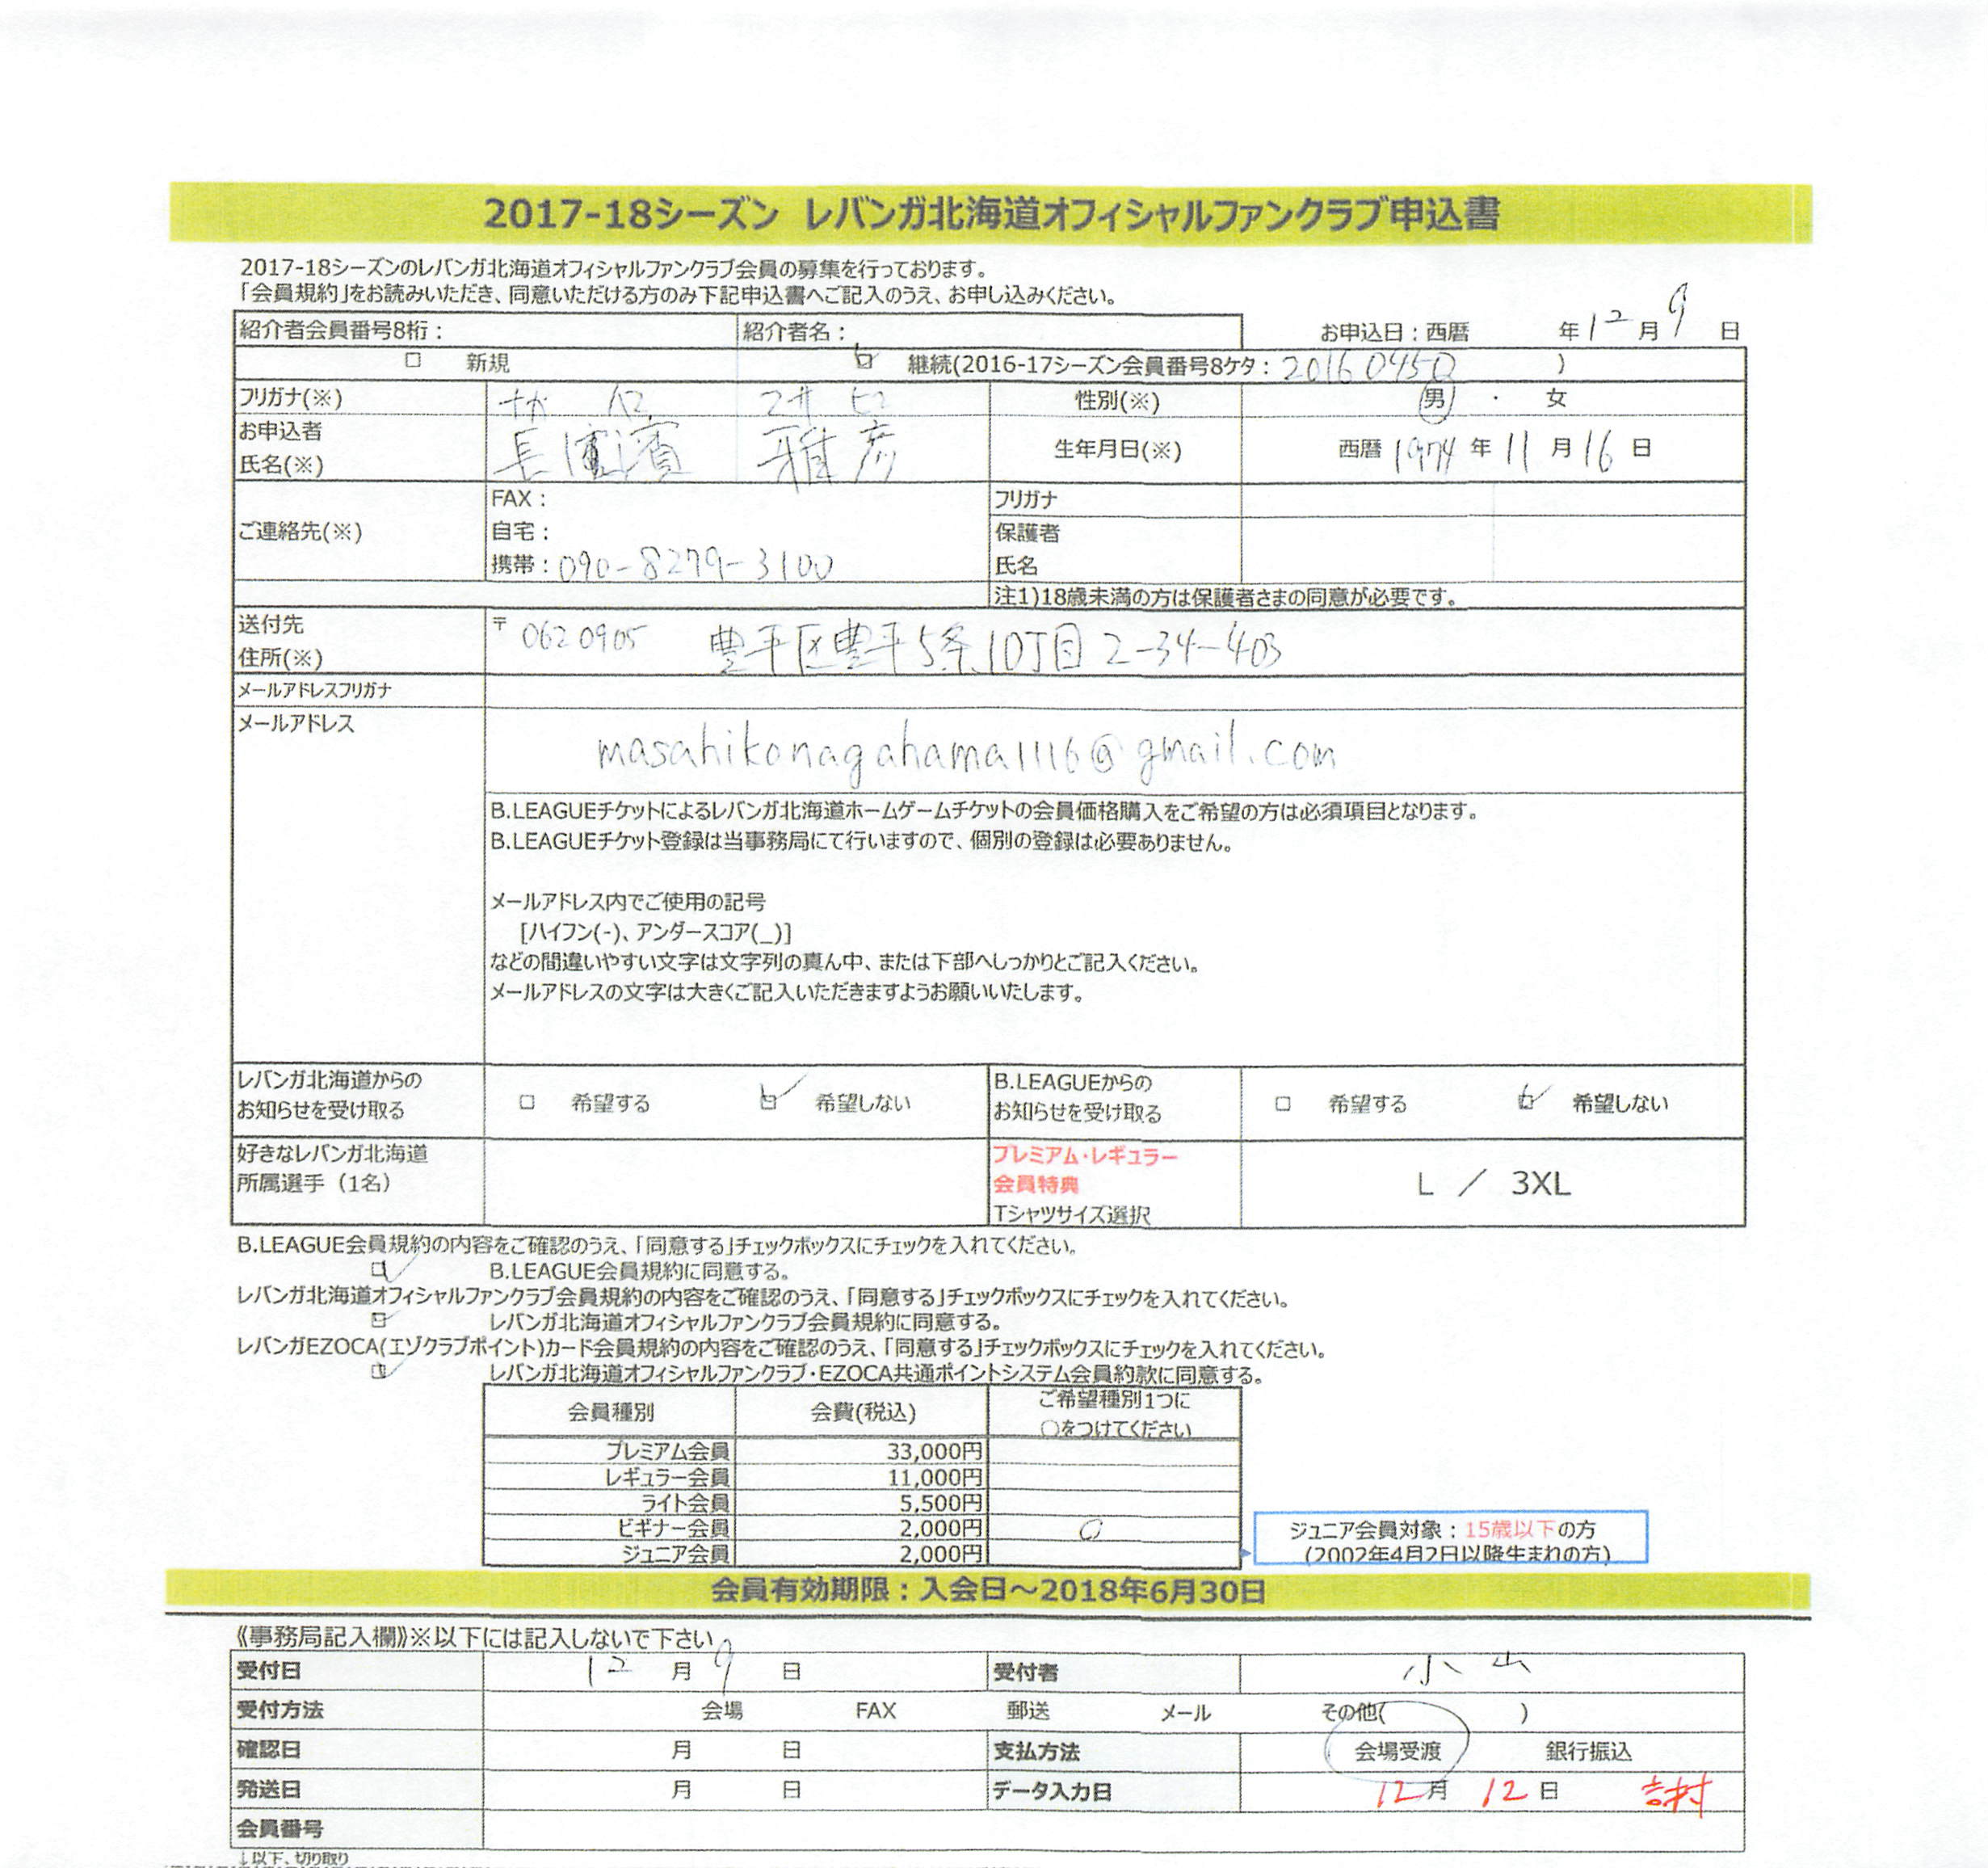 2017-18シーズン レバンガ北海道オフィシャルファンクラブ申込書
2017-18シーズンのレバンガ北海道オフィシャルファンクラブ会員の募集を行っております。
「会員規約」をお読みいただき、同意いただける方のみ下記申込書へご記入のうえ、お申し込みください。
紹介者会員番号8桁： 紹介者名： お申込日：西暦 年 12 月 9 日
□ 新規 ☑ 継続(2016-17シーズン会員番号8ケタ：20160450 )
フリガナ(※) 性別(※) 男 ・ 女
お申込者
氏名(※) 長濱 雅彦 生年月日(※) 西暦 1974 年 11 月 16 日
FAX： フリガナ
ご連絡先(※) 自宅： 保護者
携帯：090-8279-3100 氏名
注1)18歳未満の方は保護者さまの同意が必要です。
送付先
住所(※) 〒 0620905 豊平区豊平5条10丁目2-34-403
メールアドレスフリガナ
メールアドレス
masahikonagahama1116@gmail.com
B.LEAGUEチケットによるレバンガ北海道ホームゲームチケットの会員価格購入をご希望の方は必須項目となります。
B.LEAGUEチケット登録は当事務局にて行いますので、個別の登録は必要ありません。
メールアドレス内でご使用の記号
[ハイフン(-)、アンダースコア(_)]
などの間違いやすい文字は文字列の真ん中、または下部へしっかりとご記入ください。
メールアドレスの文字は大きくご記入いただきますようお願いいたします。
レバンガ北海道からの
お知らせを受け取る □ 希望する ☑ 希望しない
B.LEAGUEからの
お知らせを受け取る □ 希望する ☑ 希望しない
好きなレバンガ北海道
所属選手（1名）
プレミアム・レギュラー
会員特典
Tシャツサイズ選択 L ／ 3XL
B.LEAGUE会員規約の内容をご確認のうえ、「同意する」チェックボックスにチェックを入れてください。
☑ B.LEAGUE会員規約に同意する。
レバンガ北海道オフィシャルファンクラブ会員規約の内容をご確認のうえ、「同意する」チェックボックスにチェックを入れてください。
☑ レバンガ北海道オフィシャルファンクラブ会員規約に同意する。
レバンガEZOCA(エゾクラブポイント)カード会員規約の内容をご確認のうえ、「同意する」チェックボックスにチェックを入れてください。
☑ レバンガ北海道オフィシャルファンクラブ・EZOCA共通ポイントシステム会員約款に同意する。
会員種別 会費(税込) ご希望種別1つに
○をつけてください
プレミアム会員 33,000円
レギュラー会員 11,000円
ライト会員 5,500円
ビギナー会員 2,000円 ○
ジュニア会員 2,000円
ジュニア会員対象：15歳以下の方
(2002年4月2日以降生まれの方)
会員有効期限：入会日～2018年6月30日
《事務局記入欄》※以下には記入しないで下さい
受付日 12 月 9 日 受付者 小山
受付方法 会場 FAX 郵送 メール その他( )
確認日 月 日 支払方法 会場受渡 銀行振込
発送日 月 日 データ入力日 12月 12日
会員番号
↓以下、切り取り